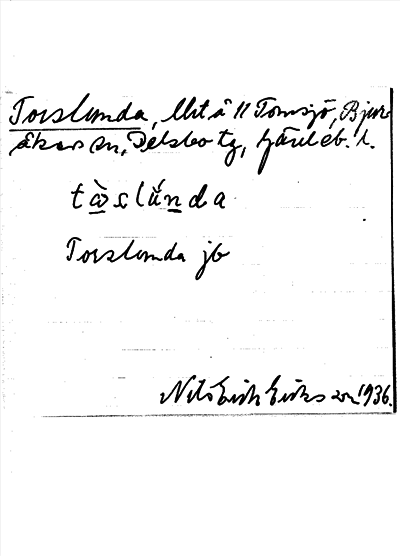 Torslunda, lht å 11 Tomsjö, Bjur-
åkers sn, Delsbo tg, Gävleb. l.
tɷ̀slúnda
Torslunda jb
Nils Erik Eriksson 1936.